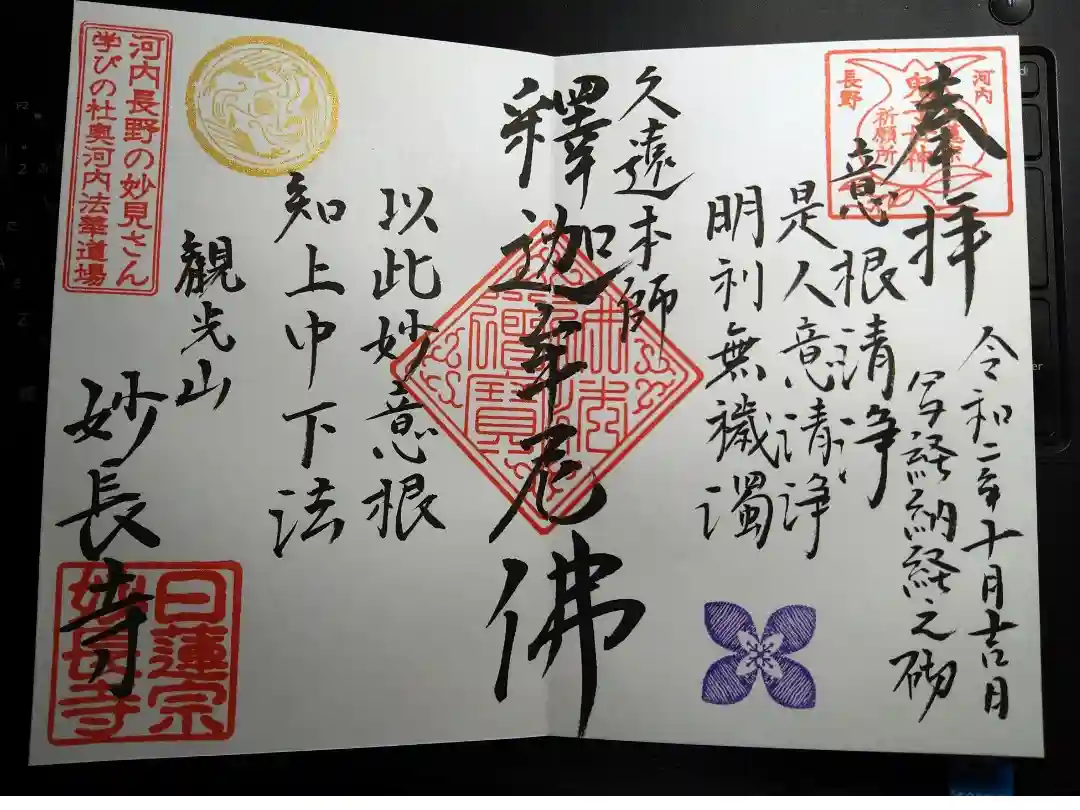 奉拝
令和二年十月吉日
写経納経之砌
意根清浄
是人意清浄
明利無穢濁
久遠本師
釋迦牟尼佛
以此妙意根
知上中下法
観光山
妙長寺
河内
長野
鬼子母神
祈願所
佛法僧寶
河内長野の妙見さん
学びの杜奥河内法華道場
日蓮宗
妙長寺